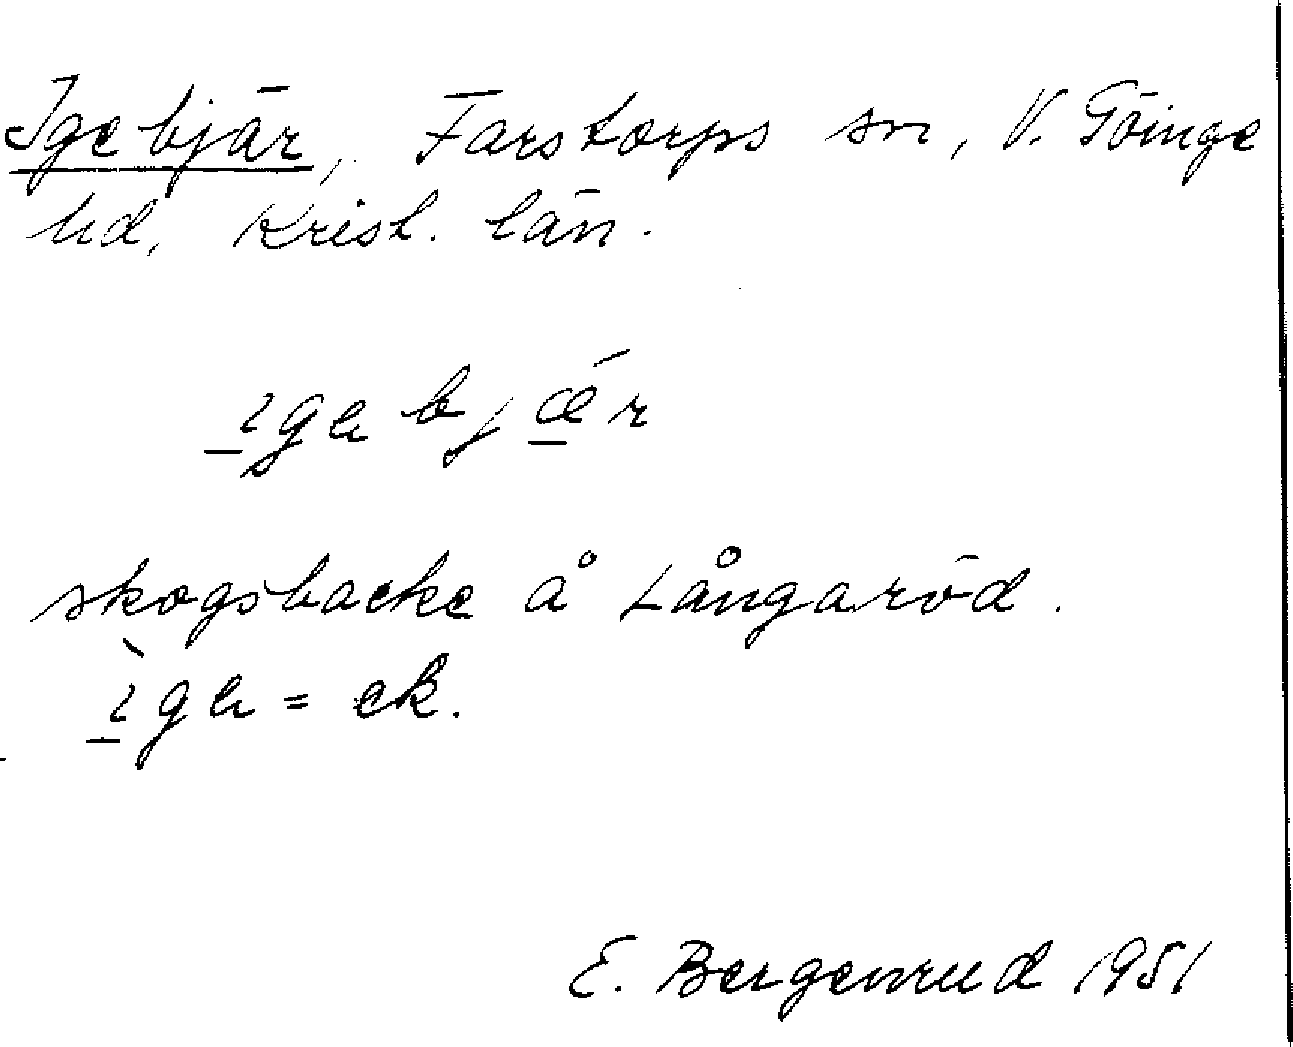 Igebjär, Farstorps sn, V. Göinge
hd, Krist. län.
ɩgəbjǽr
skogsbacke å Långaröd.
ɩ̀gə = ek.
E. Bergenrud 1951